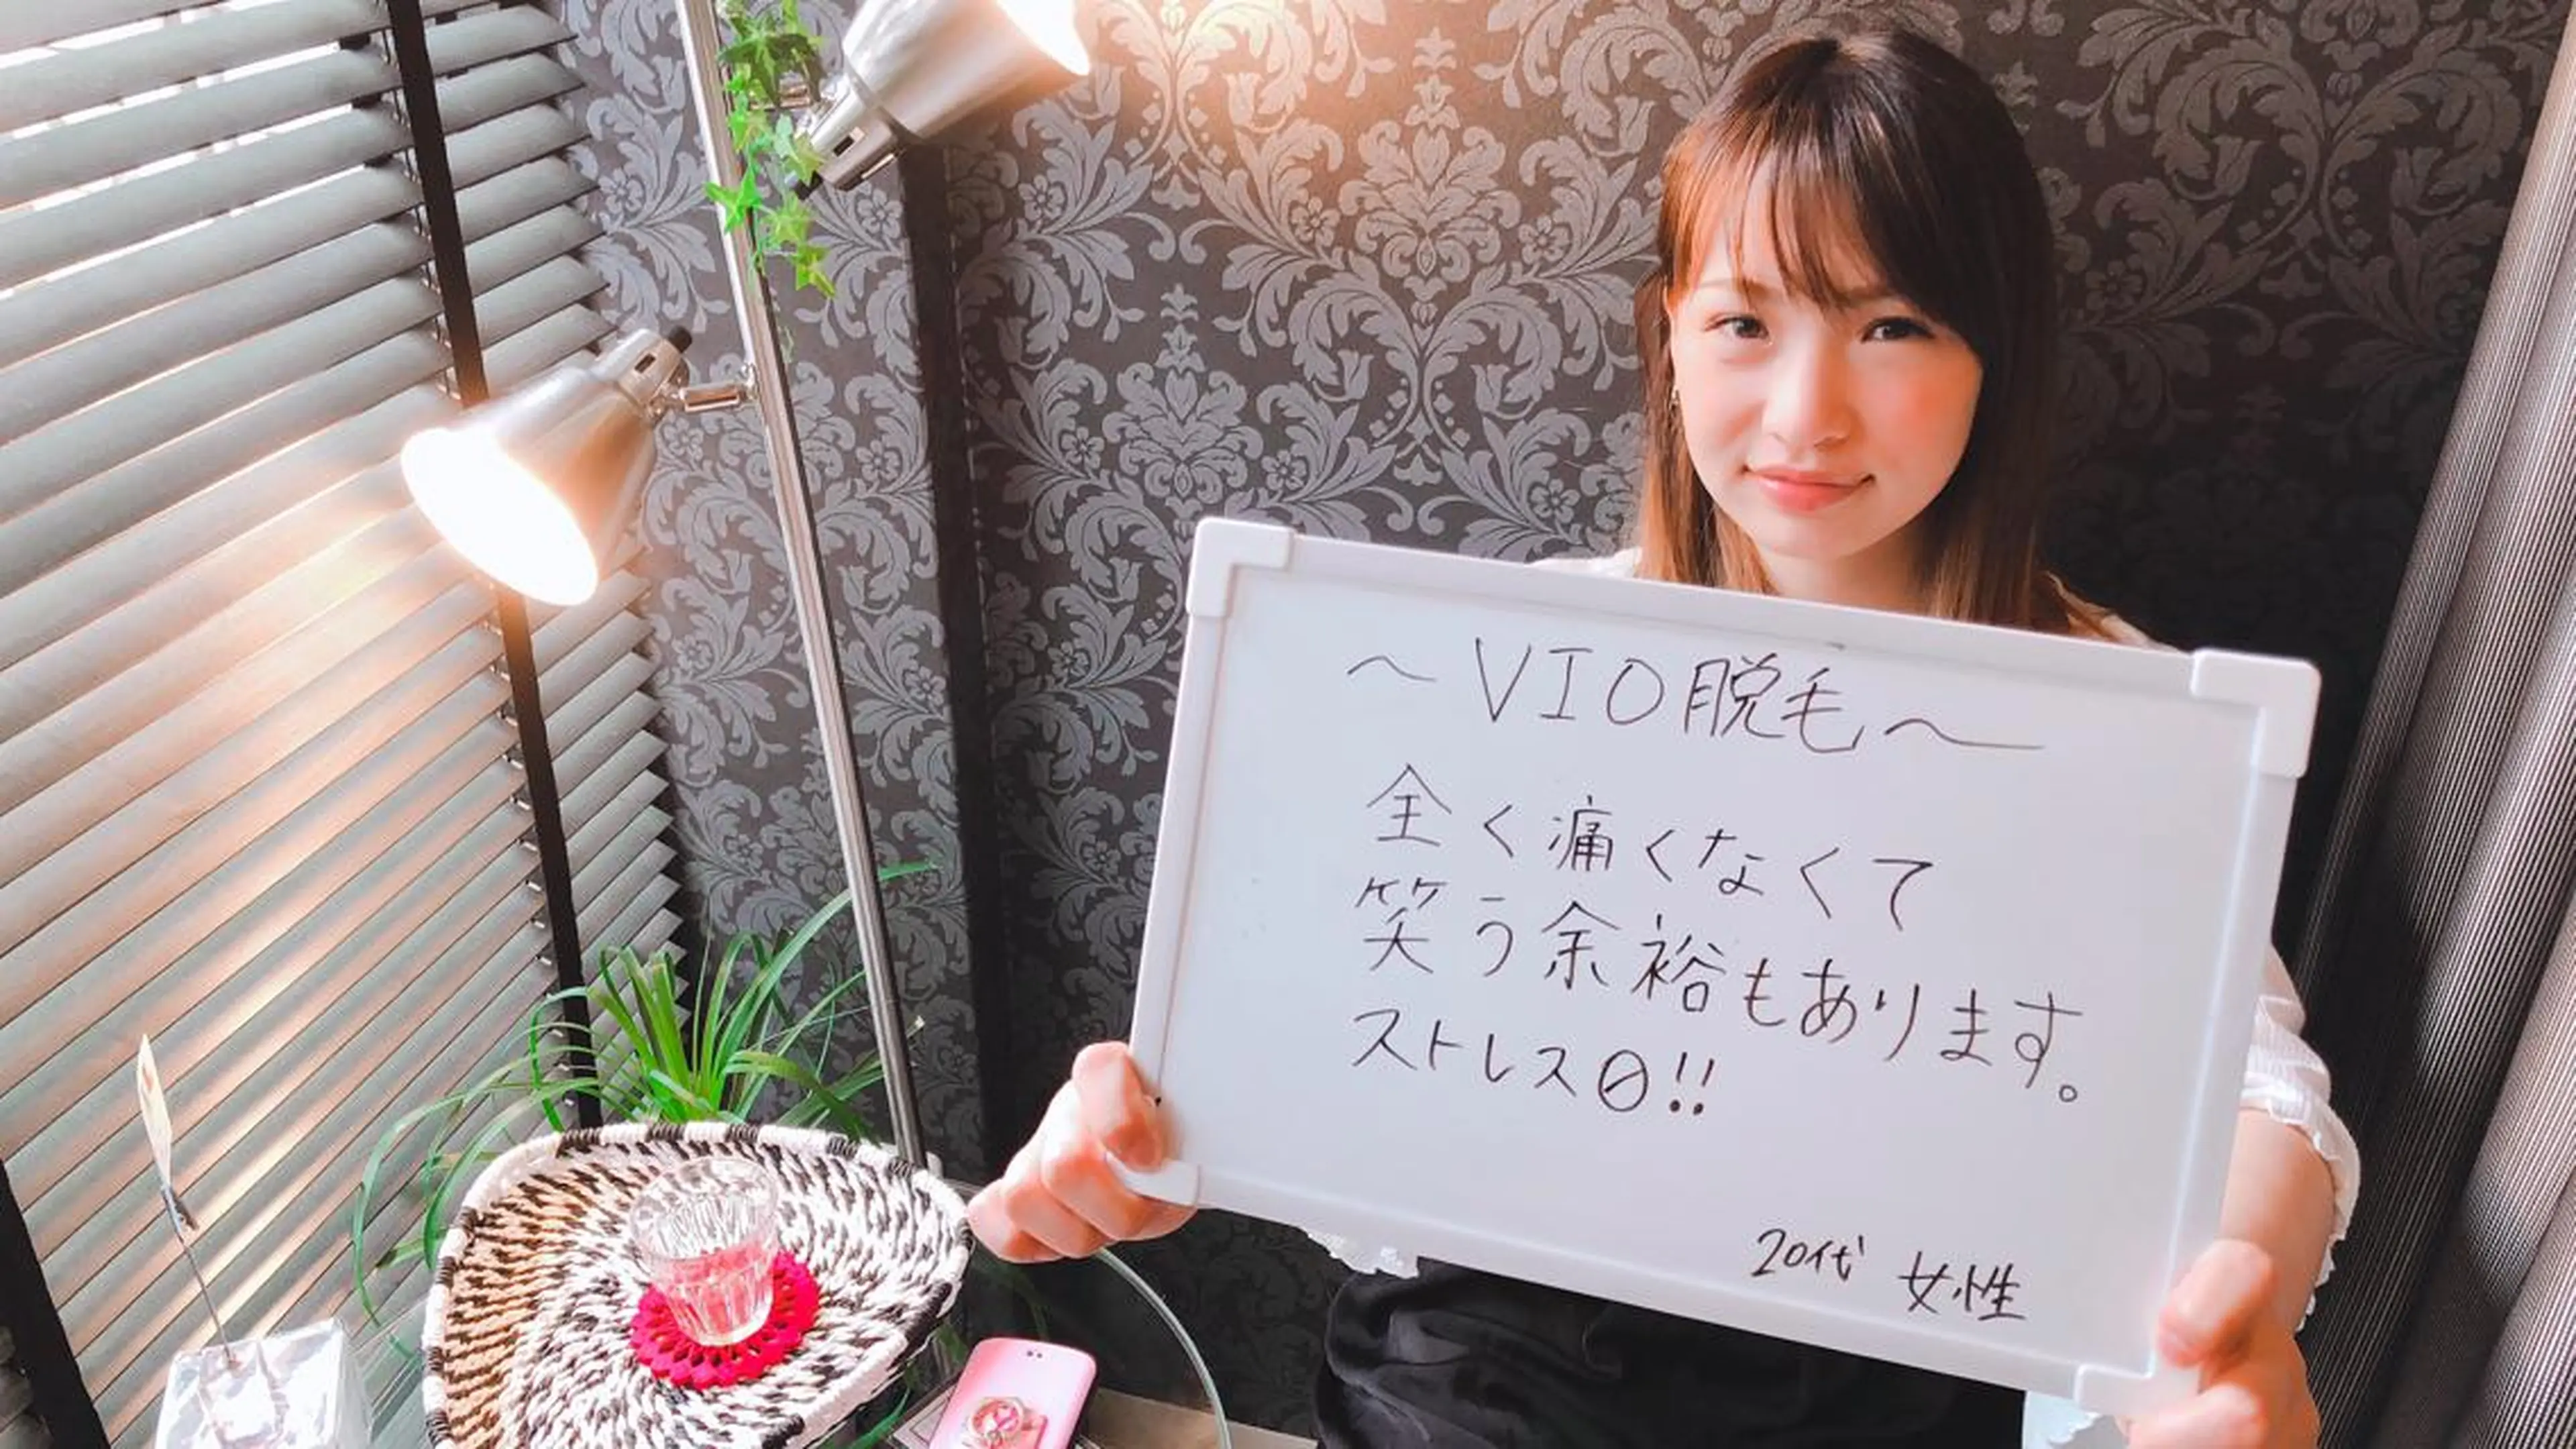 ～VIO脱毛～
全く痛くなくて
笑う余裕もあります。
ストレス0!!
20代 女性